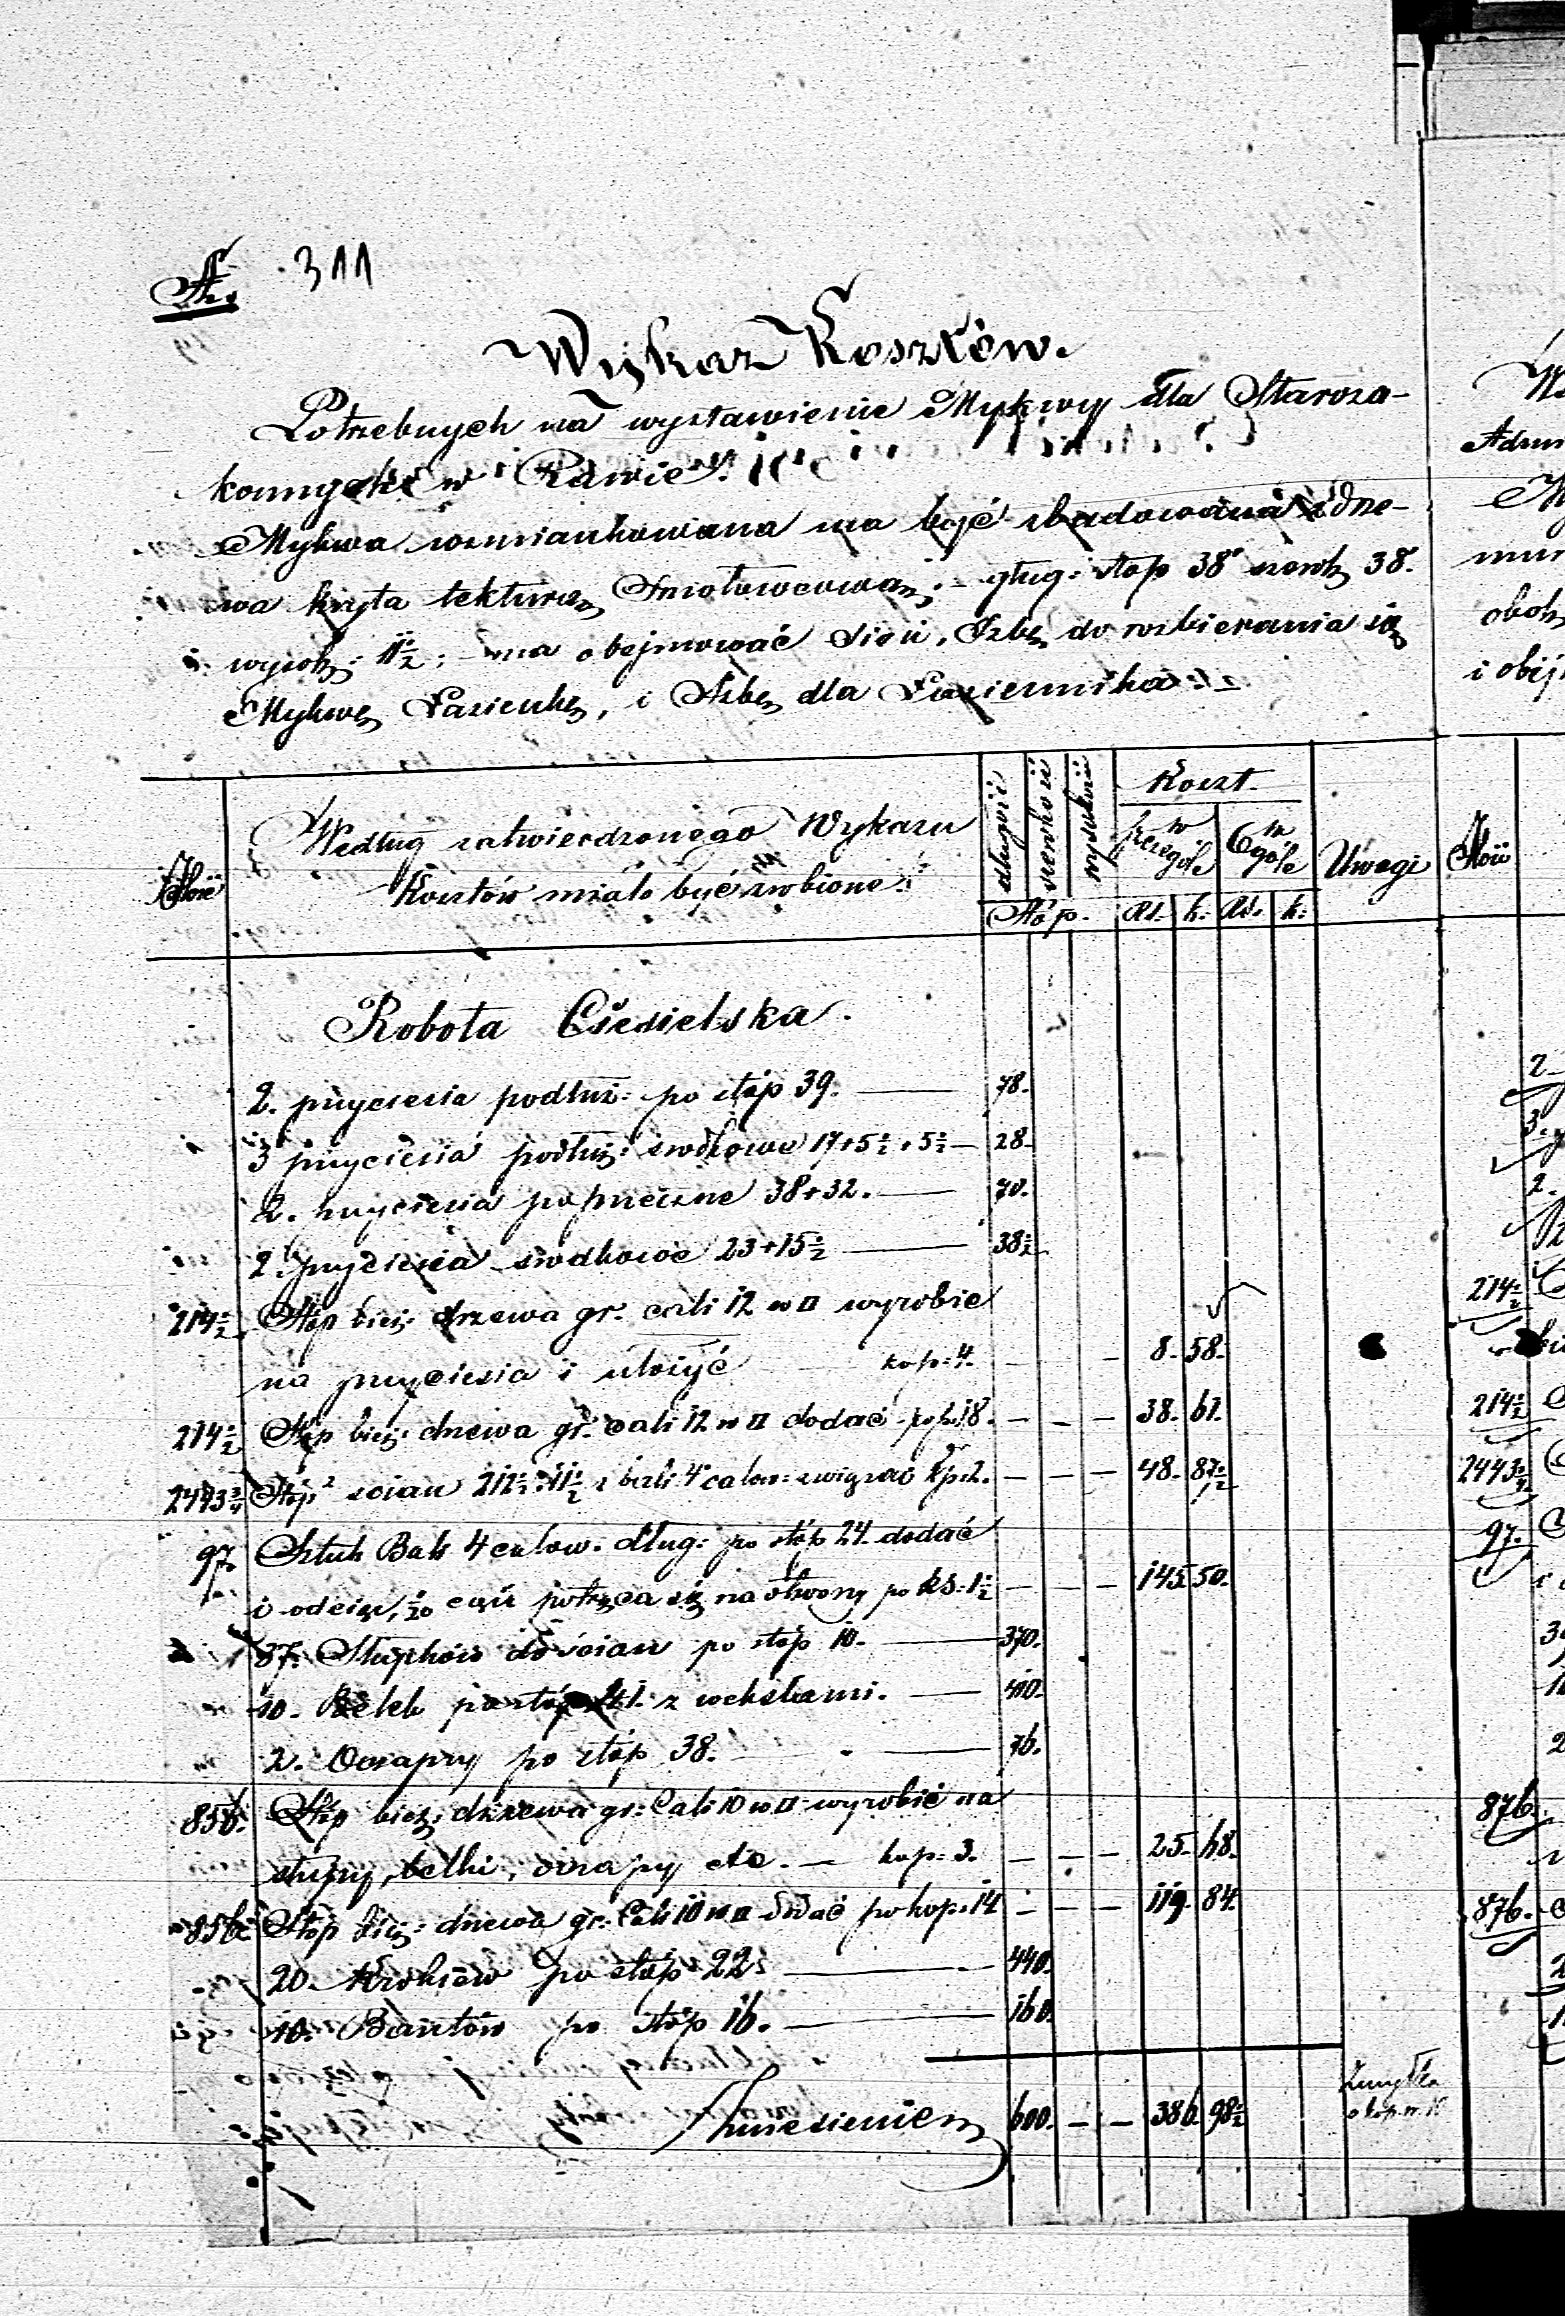 A. 311
Wykaz Kosztów.
Potrzebnych na wystawienie Mykwy dla Staroza-
konnych w Rawie.
Mykwa wzmiankowana ma być zbudowana z drze-
wa kryta tekturą Smołowcową; dług: stóp 38 szerok 38.
wysok: 11 1/2; ma obejmować Sień, Izbę do rozbierania się
Mykwę Łazienkę, i Izbę dla Łaziennika.
Ilość
Według zatwierdzonego Wykazu
Kosztów miało być zrobione.
długość szerokość wysokość
Stóp.
Koszt.
w szczególe w Ogóle
Rs. k: Rs. k:
Uwagi Ilość
Robota Ciesielska.
2. przyciesia podłuż: po stóp 39. — 78.
3 przyciesia podłuż: środkowe 17+5 1/2+5 1/2 — 28
2. przyciesia poprzeczne 38+32. — 70.
2. przyciesia środkowe 23+15 1/2 — 38 1/2
214 1/2 Stóp bież: drzewa gr. cali 12 w □ wyrobić 214 1/2
na przyciesia i ułożyć kop: 4. — — 8. 58.
214 1/2 Stóp bież: drzewa gr. cali 12 w □ dodać po k. 18. — — — 38. 61. 214 1/2
2443 3/4 Stóp² ścian 212 1/2 : 11 1/2 z bali 4 calow: związać kp: 2. — — — 48. 87 1/2 2443 3/4
97. Sztuk Bali 4 calow. dług: po stóp 24. dodać 97.
i odcią, 1/20 część potrąca się na otwory po Rs. 1 1/2 — — — 145 50.
37. Słupków do ścian po stóp 10. — 370.
10. Belek po stóp 41. z wekslami. — 410.
2. Oczapy po stóp 38. — 76.
856. Stóp bież: drzewa gr: Cali 10 w □ wyrobić na 876.
słupy, belki, oczapy etc. — kop: 3. — — — 25. 68.
856 Stóp bież: drzewa gr: Cali 10 w □ dodać po kop: 14 — — — 119. 84. 876.
20. Krokiew po stóp 22. — 440.
10. Bantów po stóp 16. — 160.
Przeniesienie 600. — — 386 98 1/2